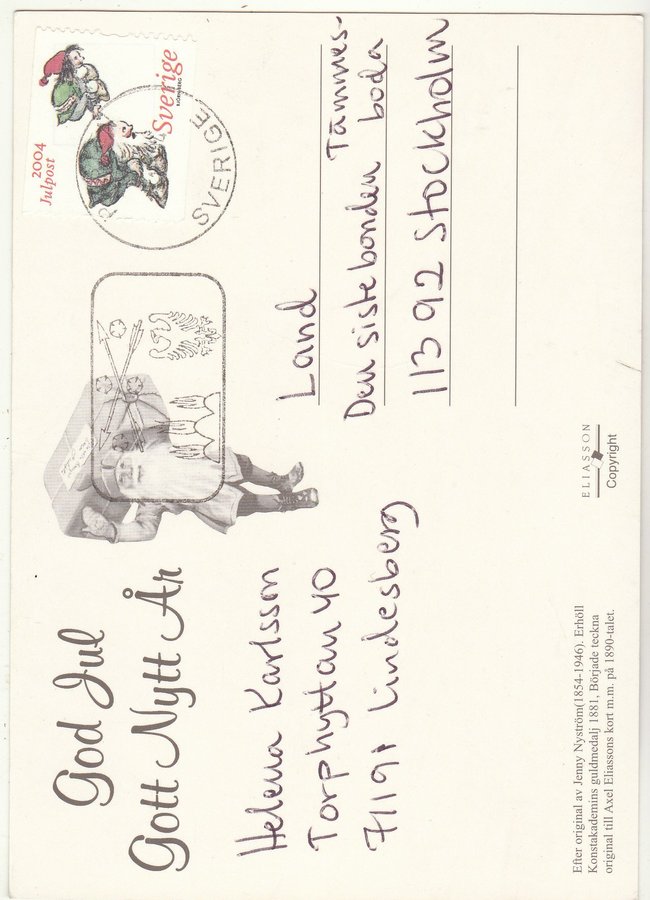 God Jul
Gott Nytt År
Helena Karlsson
Torphyttan 40
71191 Lindesberg
2004
Julpost
Sverige
SVERIGE
Land
Tämmes-
Den siste bonden boda
113 92 Stockholm
ELIASSON
Copyright
Efter original av Jenny Nyström(1854-1946). Erhöll
Konstakademins guldmedalj 1881, Började teckna
original till Axel Eliassons kort m.m. på 1890-talet.